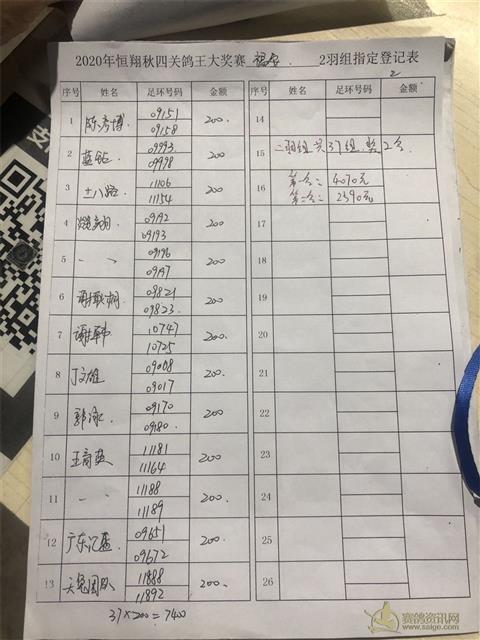 2020年恒翔秋四关鸽王大奖赛 2羽组指定登记表
2
序号 姓名 足环号码 金额 序号 姓名 足环号码 金额
1 陈彦博 09151 09158 200.
2 蓝钻 09993 09998 200
3 十八路 11106 11154 200
4 09192 09193 200
5 〃 09196 09197 200
6 09821 09823 200
7 谢韩 10747 10725 200
8 丁文雄 09008 09017 200.
9 09170 09180 200
10 11181 11164 200
11 〃 11188 11189 200.
12 广东 09651 09672 200.
13 团队 11888 11892 200.
14
15 二羽组共37组.奖2名
16 第一名: 4070元
第二名: 2590元
17
18
19
20
21
22
23
24
25
26
37×200=7400
赛鸽资讯网
www.saige.com